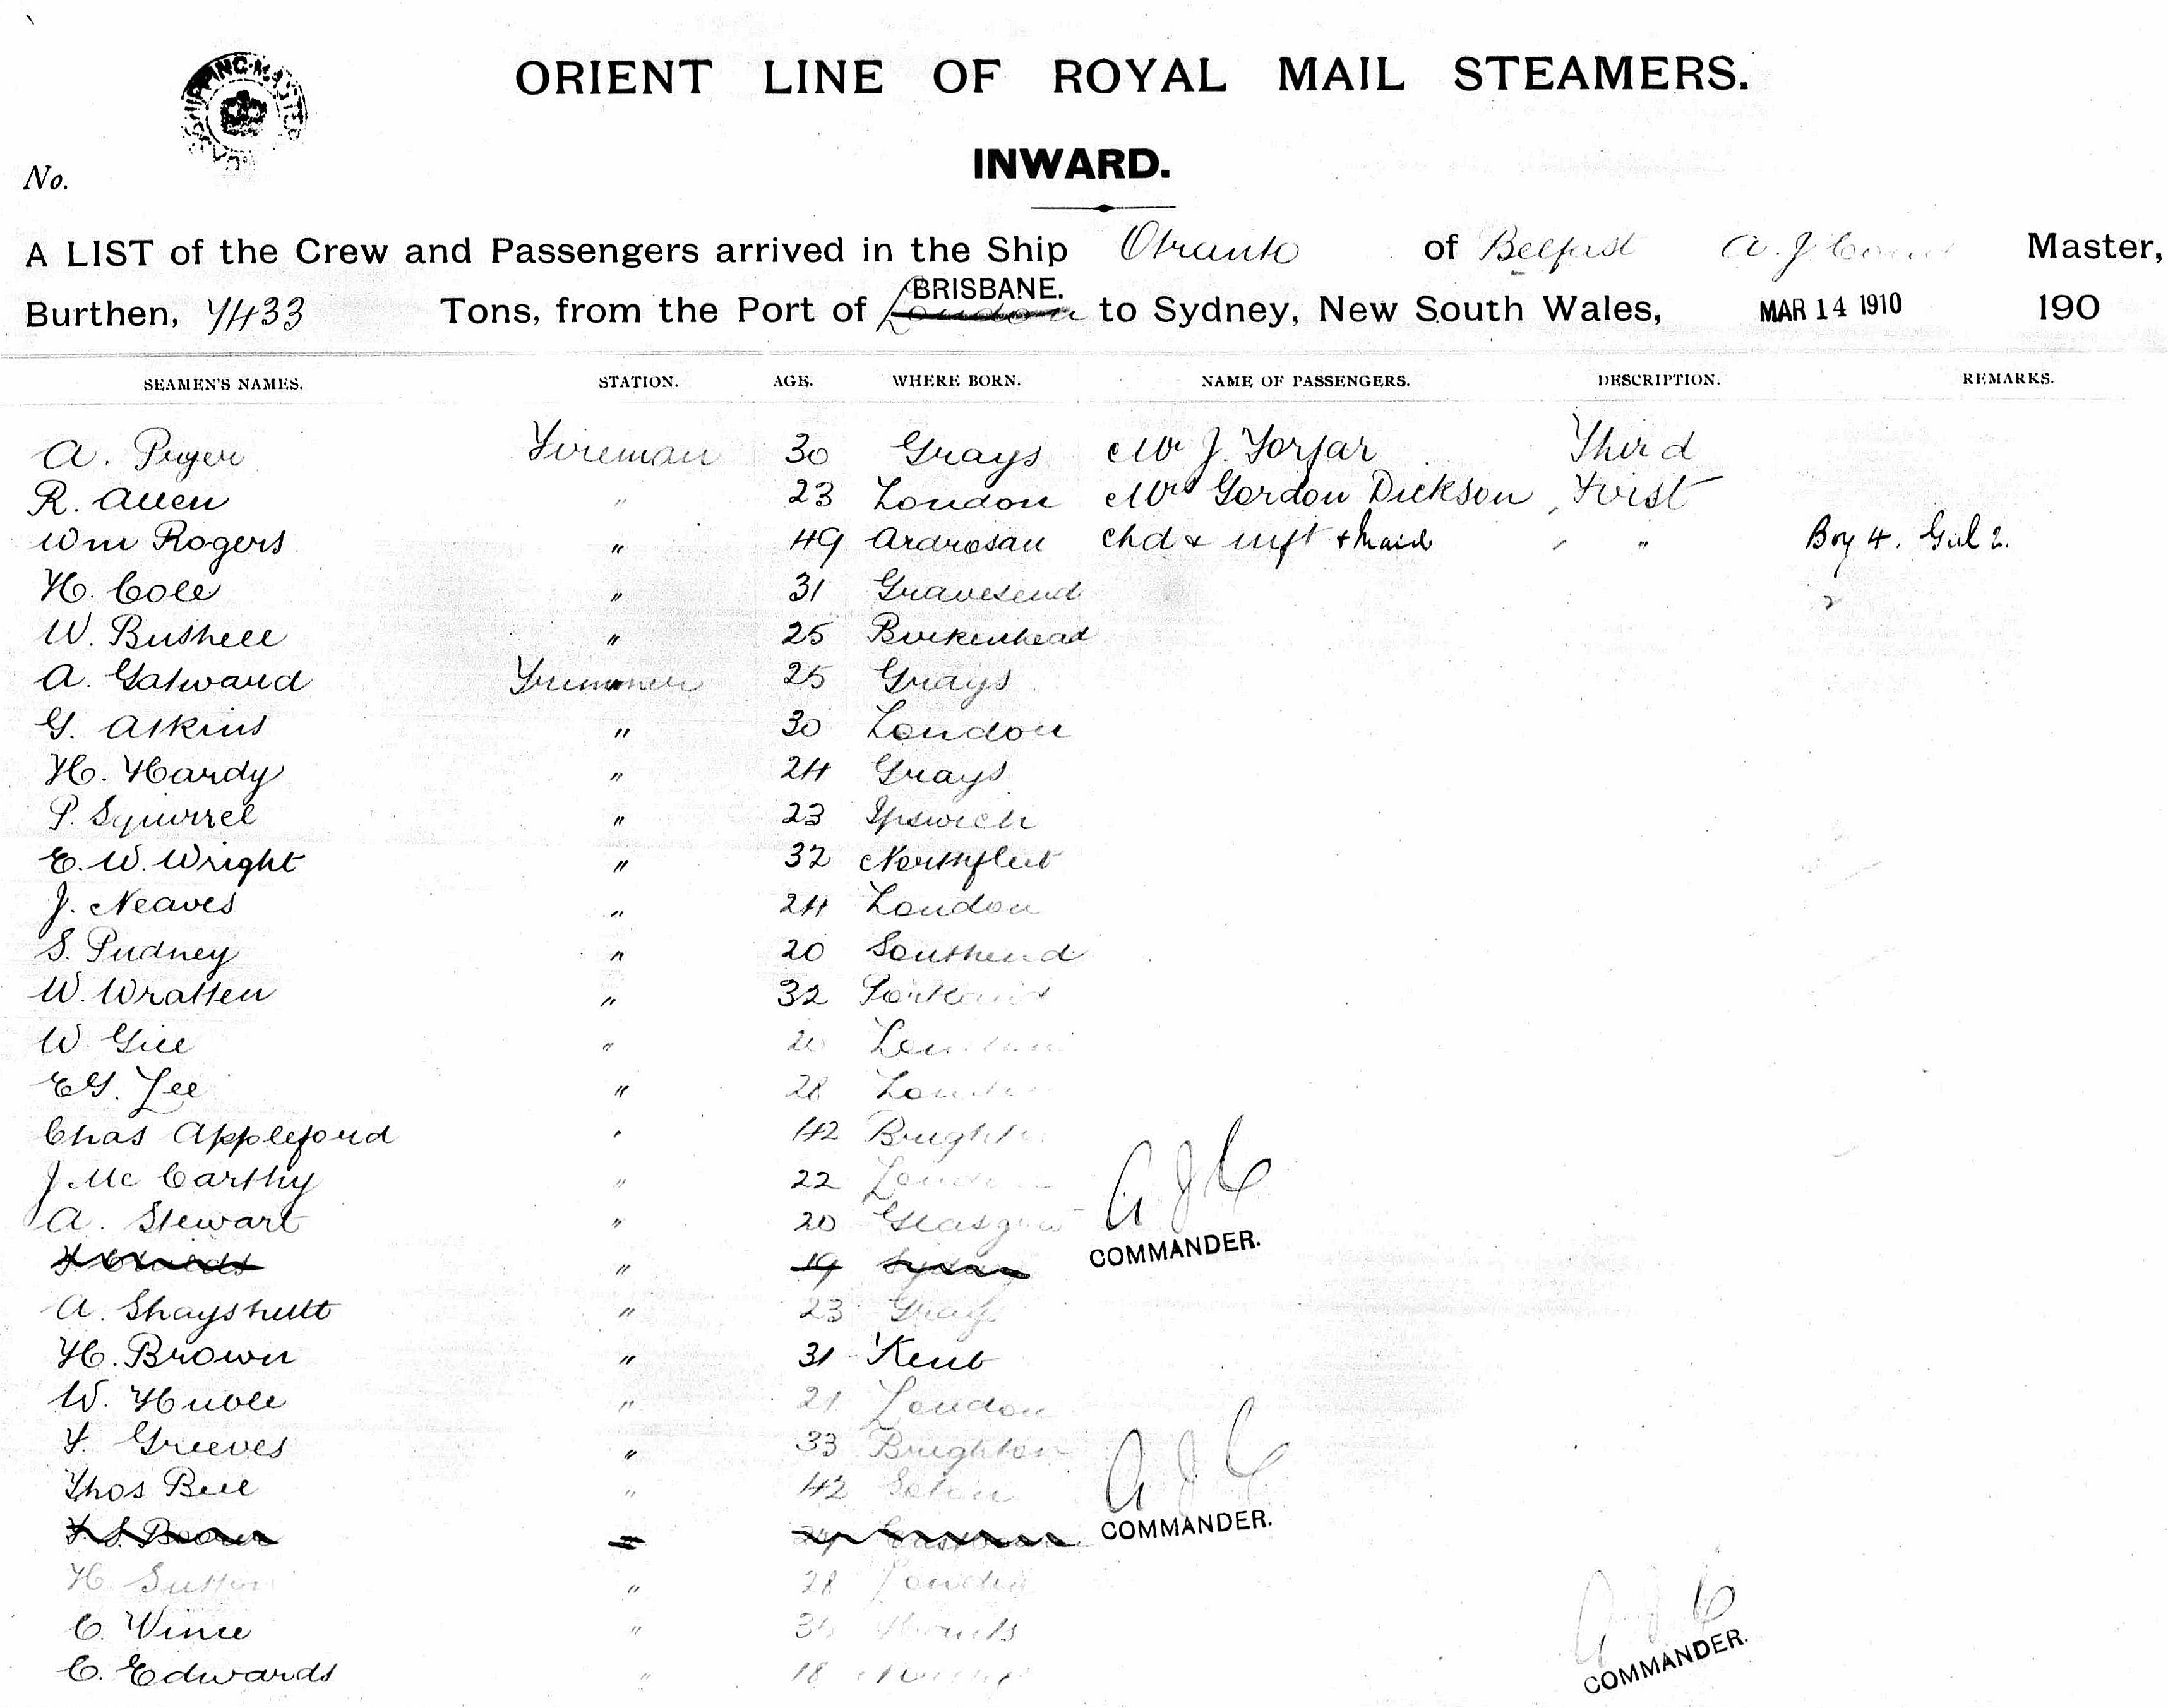 SHIPPING MASTER
ORIENT LINE OF ROYAL MAIL STEAMERS.
INWARD.
No.
A LIST of the Crew and Passengers arrived in the Ship Otranto of Belfast A. J. Master,
BRISBANE.
Burthen, 7433 Tons, from the Port of London to Sydney, New South Wales, MAR 14 1910 190
SEAMEN'S NAMES. STATION. AGE. WHERE BORN. NAME OF PASSENGERS. DESCRIPTION. REMARKS.
A. Pryer Fireman 30 Grays Mr J. Forfar Third
R. Allen " 23 London Mrs Gordon Dickson First
Wm Rogers " 49 Ardrosan Chd & inft + Maid " Boy 4. Girl 2.
H. Cole " 31 Gravesend
W. Bushell " 25 Birkenhead
A. Galward Trimmer 25 Grays
G. Atkins " 30 London
H. Hardy " 24 Grays
P. Squirrel " 23 Ipswich
E. W. Wright " 32 Northfleet
J. Neaves " 24 London
S. Pudney " 20 Southend
W. Wratten " 32 Portland
W. Gill " London
EG. Lee " 28 London
Chas Appleford " 42 Brighton
J. Mc Carthy " 22 London
A. Stewart " 20 Glasgow A J C
COMMANDER.
" 19 Sydney
A. Shayshutt " 23 Grays
H. Brown " 31 Kent
W. Huble " 21 London
F. Greeves " 33 Brighton
Thos Bull " 42 A J C
COMMANDER.
"
H. Sutton " 28 London
C. Vince " A J C
C. Edwards " 18
COMMANDER.